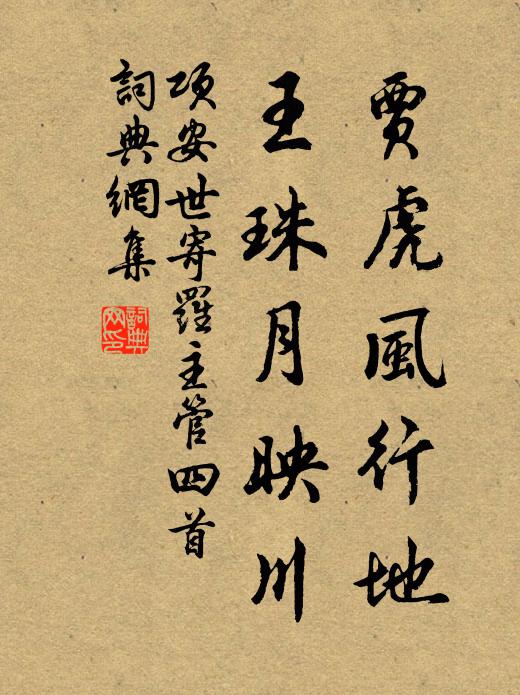 賈虎風行地
王珠月映川
項安世寄羅主管四首
詞典網集
詞典
网印